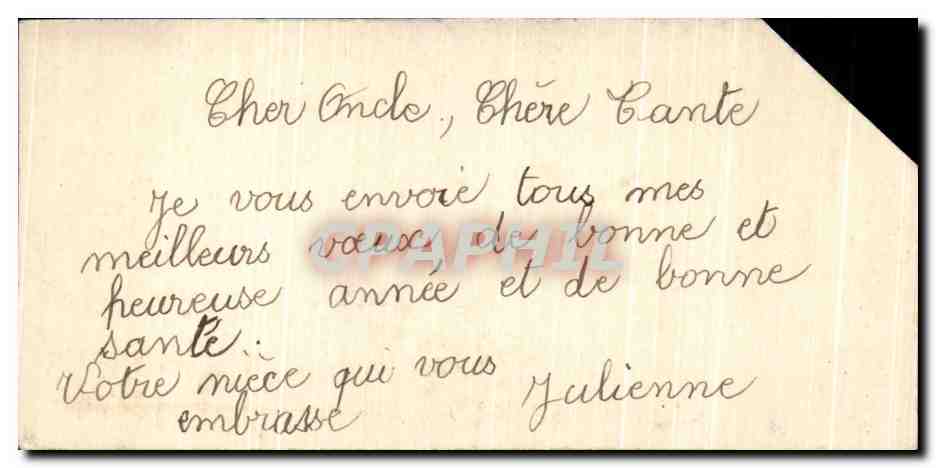 Cher Oncle, Chère Tante
Je vous envoie tous mes
meilleurs vœux, de bonne et
CPAPHIL
heureuse année et de bonne
santé.
Votre nièce qui vous
embrasse
Julienne